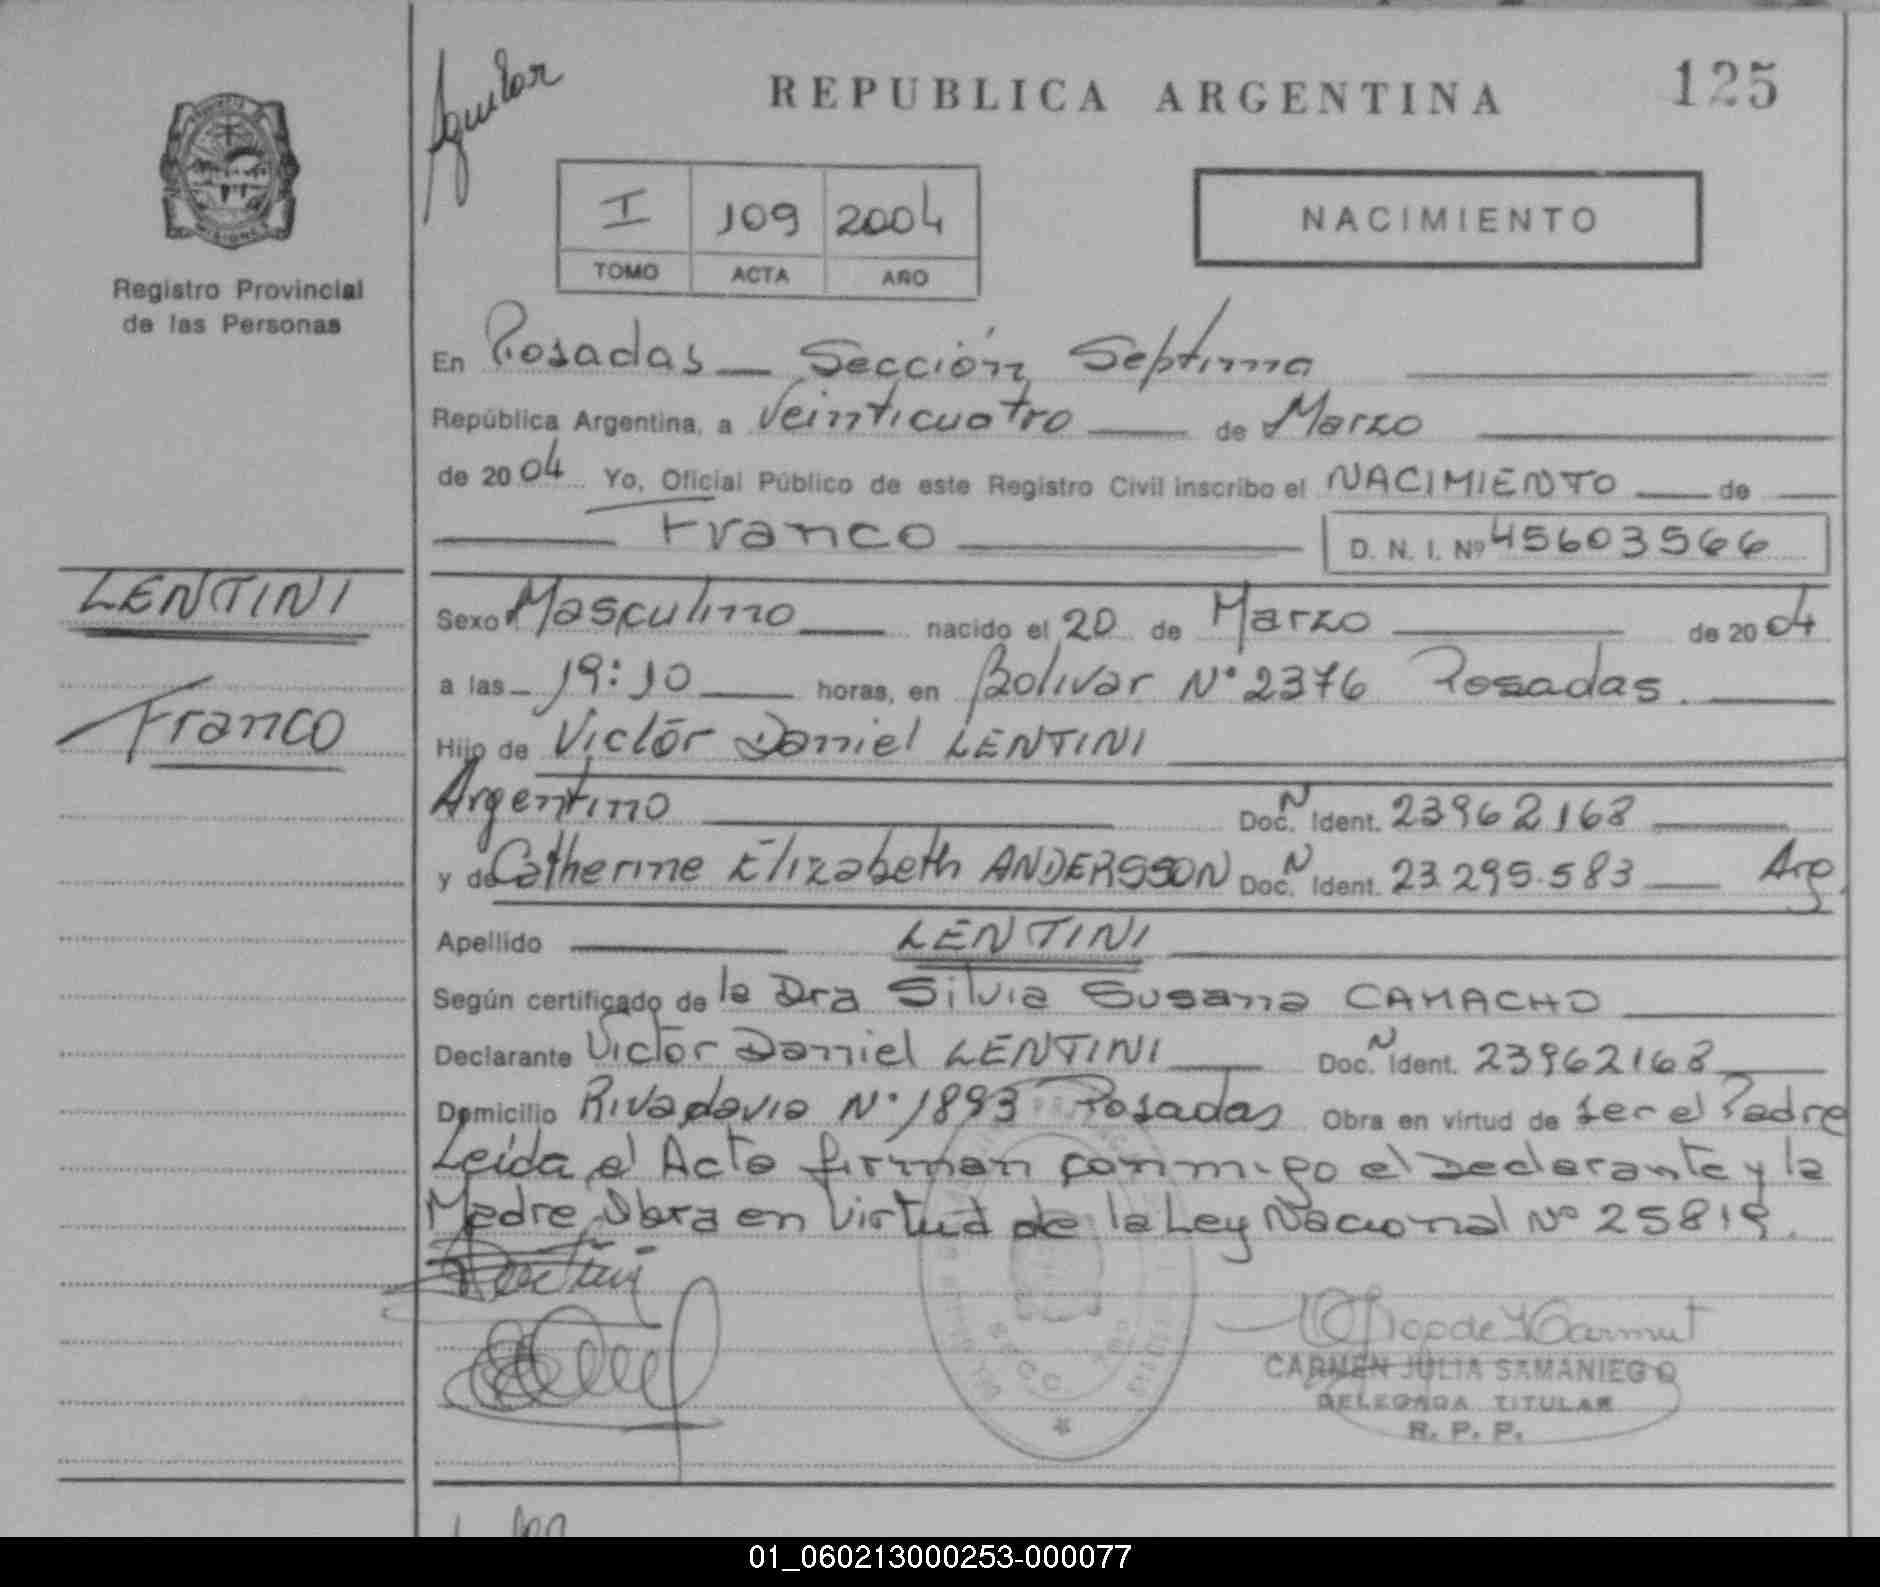 Aguilar
REPUBLICA ARGENTINA
125
MISIONES
Registro Provincial
de las Personas
I 109 2004
TOMO ACTA AÑO
NACIMIENTO
En Posadas — Sección Septima
República Argentina, a Veinticuatro de Marzo
de 2004 Yo, Oficial Público de este Registro Civil inscribo el NACIMIENTO de
Franco D. N. I. Nº 45603566
LENTINI
Franco
Sexo Masculino nacido el 20 de Marzo de 2004
a las 19:10 horas, en Bolivar Nº 2376 Posadas.
Hijo de Victor Daniel LENTINI
Argentino Doc. N Ident. 23962168
y de Catherine Elizabeth ANDERSSON Doc. N Ident. 23.295.583 Arg.
Apellido LENTINI
Según certificado de la Dra Silvia Susana CAMACHO
Declarante Victor Daniel LENTINI Doc. N Ident. 23962168
Domicilio Rivadavia Nº 1893 Posadas Obra en virtud de ser el Padre
Leída el Acta firman conmigo el Declarante y la
Madre, Obra en Virtud de la Ley Nacional Nº 25819.
CARMEN JULIA SAMANIEGO
DELEGADA TITULAR
R. P. P.
01_060213000253-000077